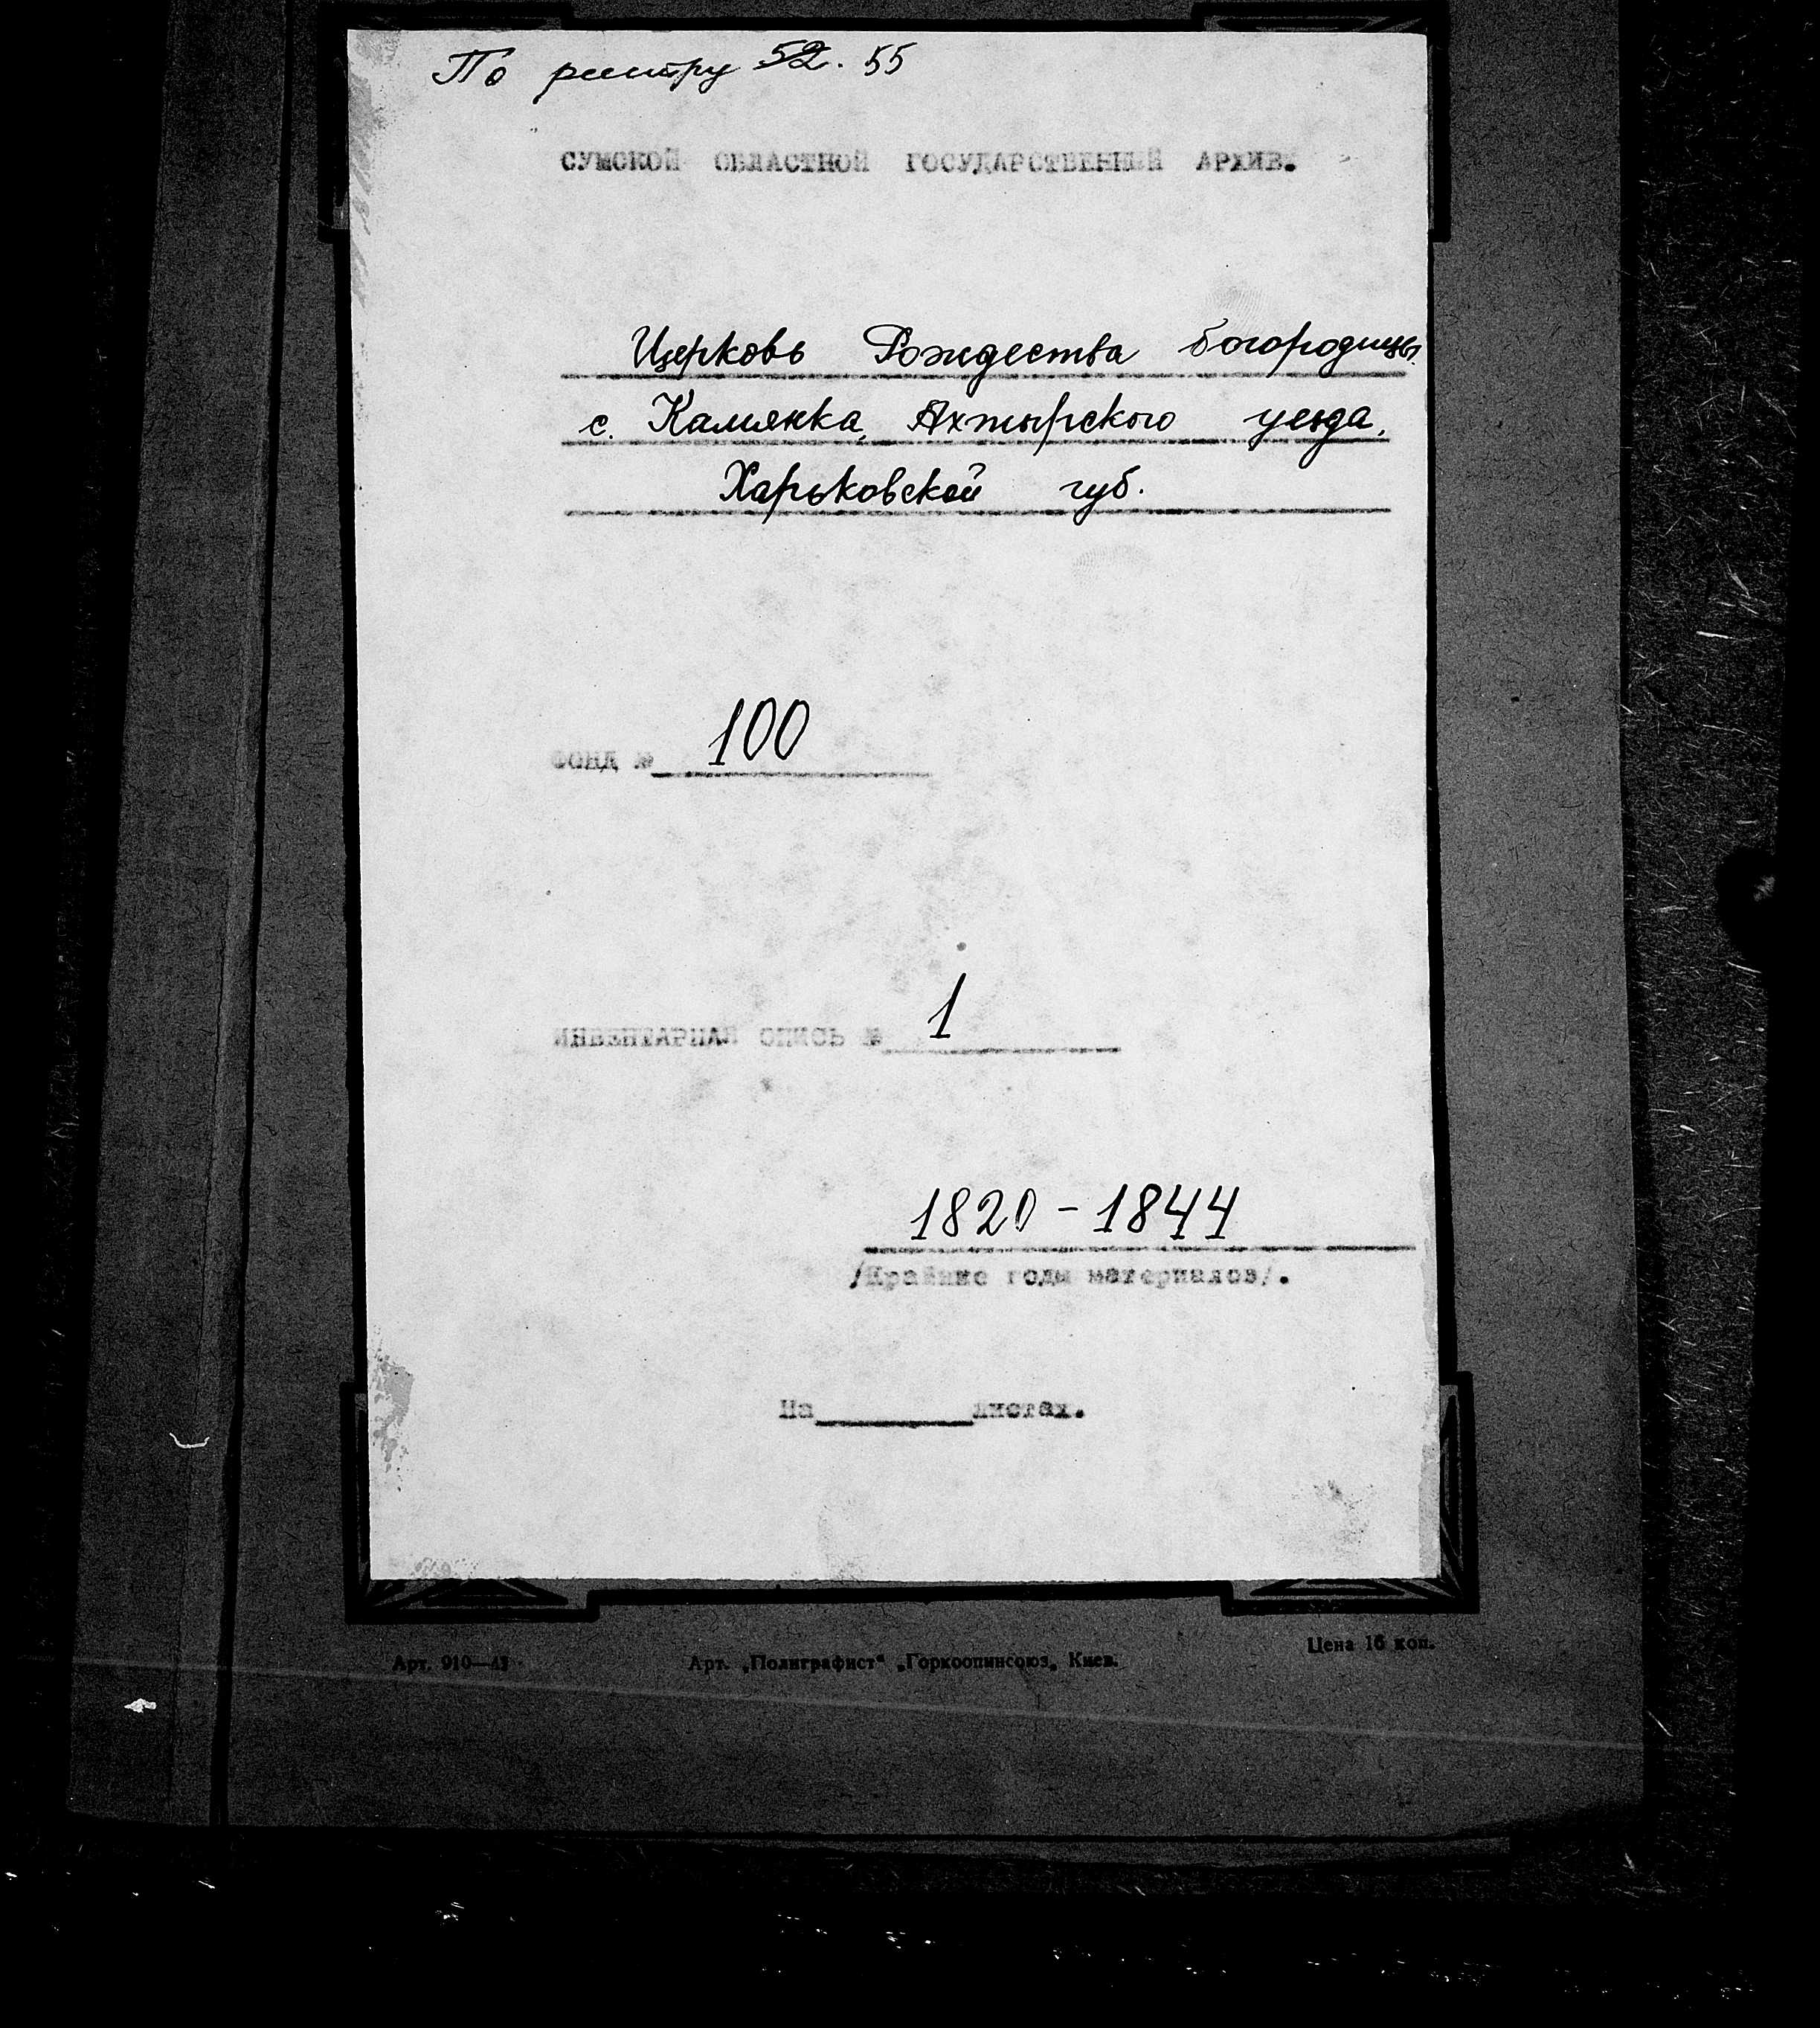 По реестру 52. 55
СУМСКОЙ ОБЛАСТНОЙ ГОСУДАРСТВЕННЫЙ АРХИВ.
Церковь Рождества богородицы
с. Камянка, Ахтырского уезда,
Харьковской губ.
ФОНД № 100
ИНВЕНТАРНАЯ ОПИСЬ № 1
1820 - 1844
/Крайние годы материалов/.
На листах.
Арт. 910—43 Арт. „Полиграфист“ „Горкоопинсоюз„ Киев. Цена 16 коп.